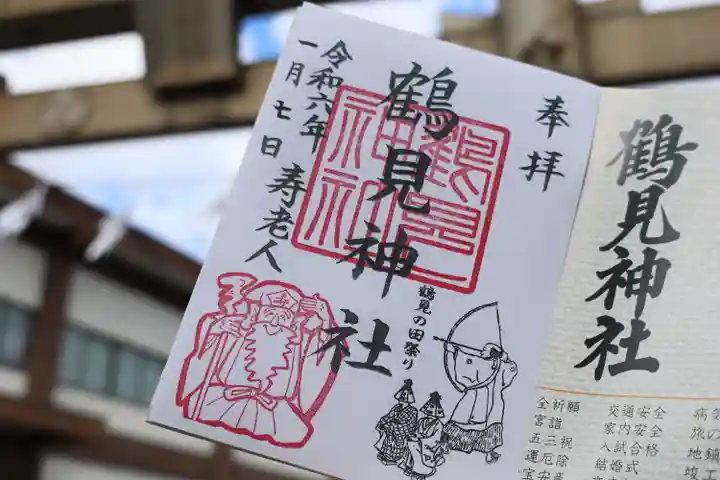 鶴見神社
奉拝
鶴見神社
鶴見神社
令和六年
一月七日
寿老人
鶴見の田祭り
寿
交通安全
家内安全
入試合格
結婚式
全祈願
宮詣
五三祝
運厄除
宝安産